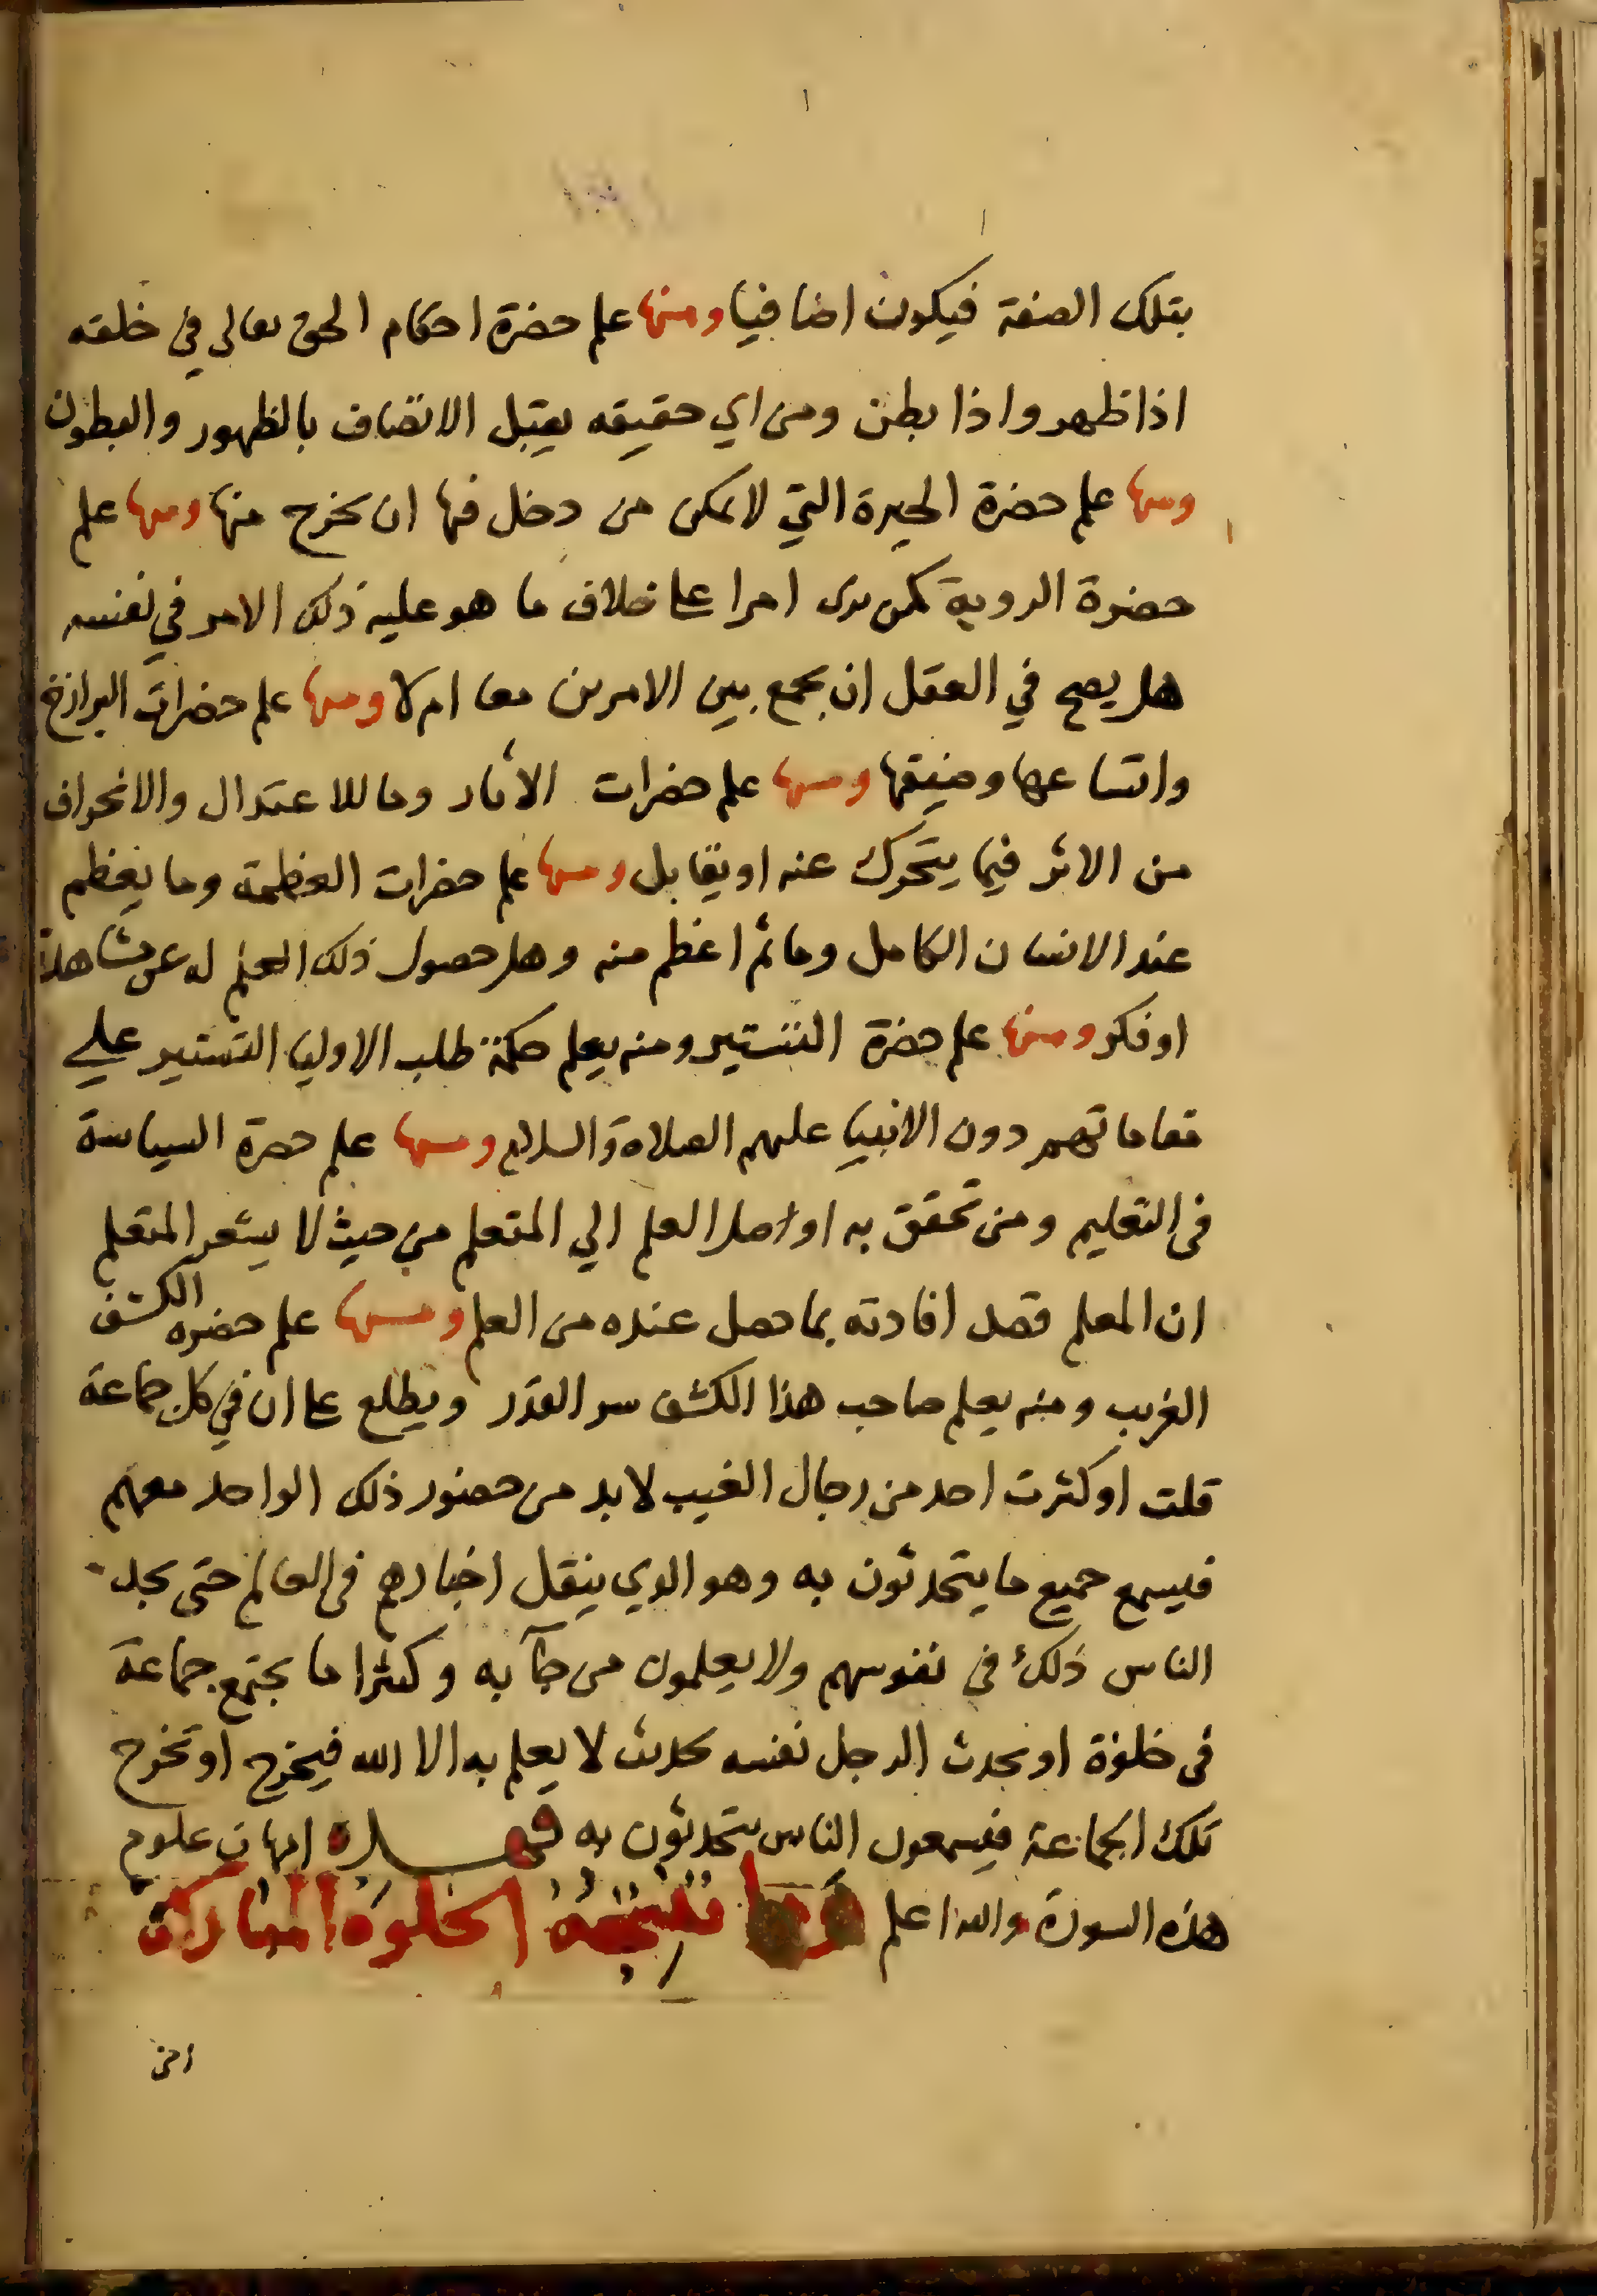 بتلك الصفة فيكون اضافيا ومنها علم حضرة احكام الحق تعالى في خلقه
اذا ظهر واذا بطن ومن اي حقيقه يقبل الاتصاف بالظهور والبطون
ومنها علم حضرة الحيرة التي لا يمكن من دخل فيها ان يخرج منها ومنها علم
حضرة الروية كمن يرى امرا على خلاف ما هو عليه ذلك الامر في نفسه
هل يصح في العقل ان يجمع بين الامرين معا ام لا ومنها علم حضرات البرازخ
واتساعها وضيقها ومنها علم حضرات الاثار وما للاعتدال والانحراف
من الاثر فيما يتحرك عنه او يقابل ومنها علم حضرات العظمة وما يعظم
عند الانسان الكامل وما ثم اعظم منه وهل حصول ذلك العلم له عن مشاهدة
او فكر ومنها علم حضرة التستير ومنه يعلم حكمة طلب الاوليا التستير علي
مقاماتهم دون الانبيا عليهم الصلاة والسلام ومنها علم حضرة السياسة
في التعليم ومن تحقق به اوصل العلم الي المتعلم من حيث لا يشعر المتعلم
ان المعلم قصد افادته بما حصل عنده من العلم ومنها علم حضره الكشف
الغريب ومنه يعلم صاحب هذا الكشف سر القدر ويطلع على ان في كل جماعة
قلت او كثرت احد من رجال الغيب لا بد من حضور ذلك الواحد معهم
فيسمع جميع ما يتحدثون به وهو الذي ينقل اخبارهم في العالم حتى يجد
الناس ذلك في نفوسهم ولا يعلمون من جآ به وكثيرا ما يجتمع جماعة
في خلوة او يحدث الرجل نفسه بحديث لا يعلم به الا الله فيخرج او تخرج
تلك الجماعة فيسمعون الناس يتحدثون به فهذه امهات علوم
هذه السورة والله اعلم نتيجة الخلوة المباركة